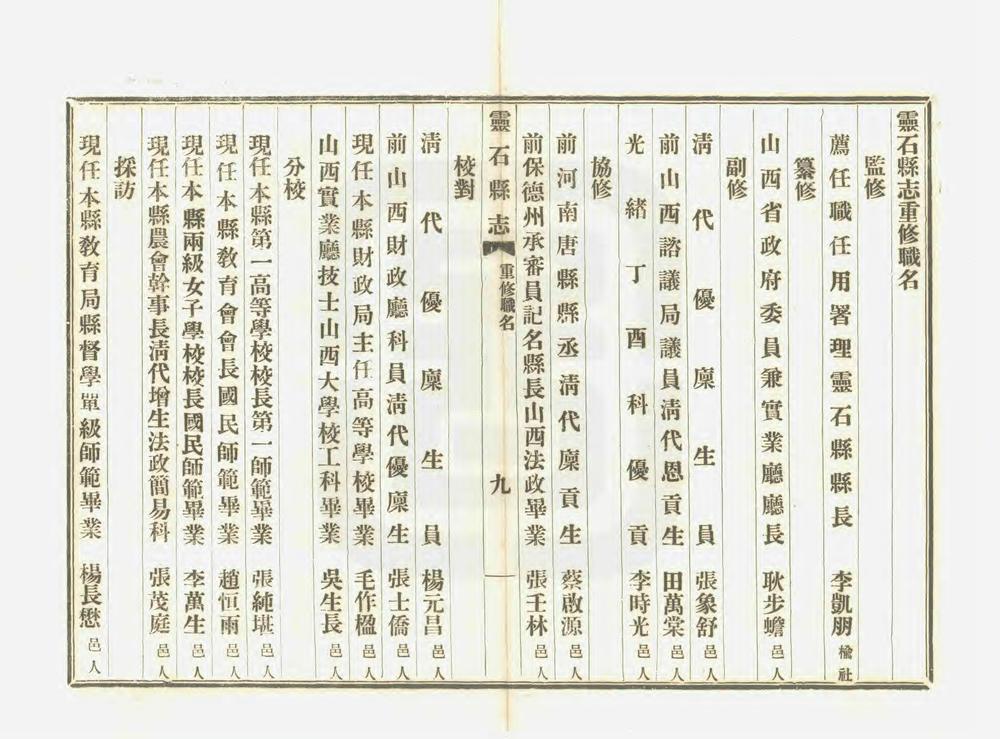 靈石縣志重修職名
監修
薦任職任用署理靈石縣縣長 李凱朋 榆社
纂修
山西省政府委員兼實業廳廳長 耿步蟾 邑人
副修
清代優廩生員 張象舒 邑人
前山西諮議局議員清代恩貢生 田萬棠 邑人
光緒丁酉科優貢 李時光 邑人
協修
前河南唐縣縣丞清代廩貢生 蔡啟源 邑人
前保德州承審員記名縣長山西法政畢業 張壬林 邑人
靈石縣志 重修職名 九
校對
清代優廩生員 楊元昌 邑人
前山西財政廳科員清代優廩生 張士僑 邑人
現任本縣財政局主任高等學校畢業 毛作楹 邑人
山西實業廳技士山西大學校工科畢業 吳生長 邑人
分校
現任本縣第一高等學校校長第一師範畢業 張純堪 邑人
現任本縣教育會會長國民師範畢業 趙恒雨 邑人
現任本縣兩級女子學校校長國民師範畢業 李萬生 邑人
現任本縣農會幹事長清代增生法政簡易科 張茂庭 邑人
採訪
現任本縣教育局縣督學單級師範畢業 楊長懋 邑人